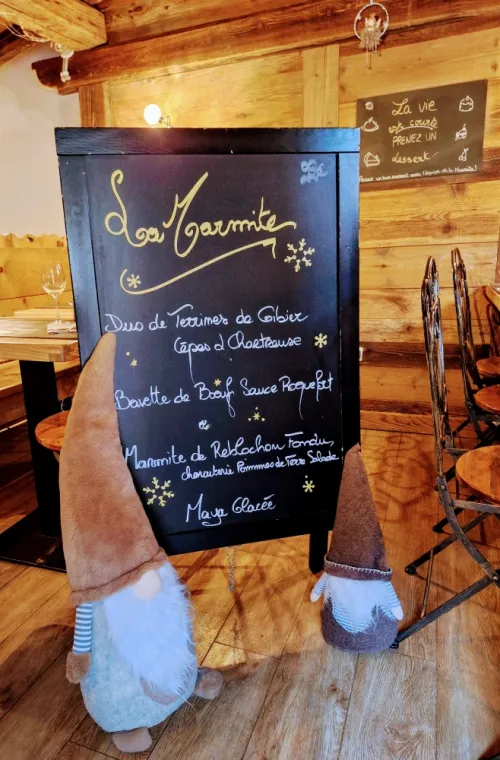 La Marmite
Duo de Terrines de Gibier
Cèpes d'Chartreuse
Bavette de Bœuf Sauce Roquefort
Marmite de Reblochon Fondu,
charcuterie Pommes de Terre Salade
Maya Glacée
La vie
est courte
PRENEZ UN
dessert